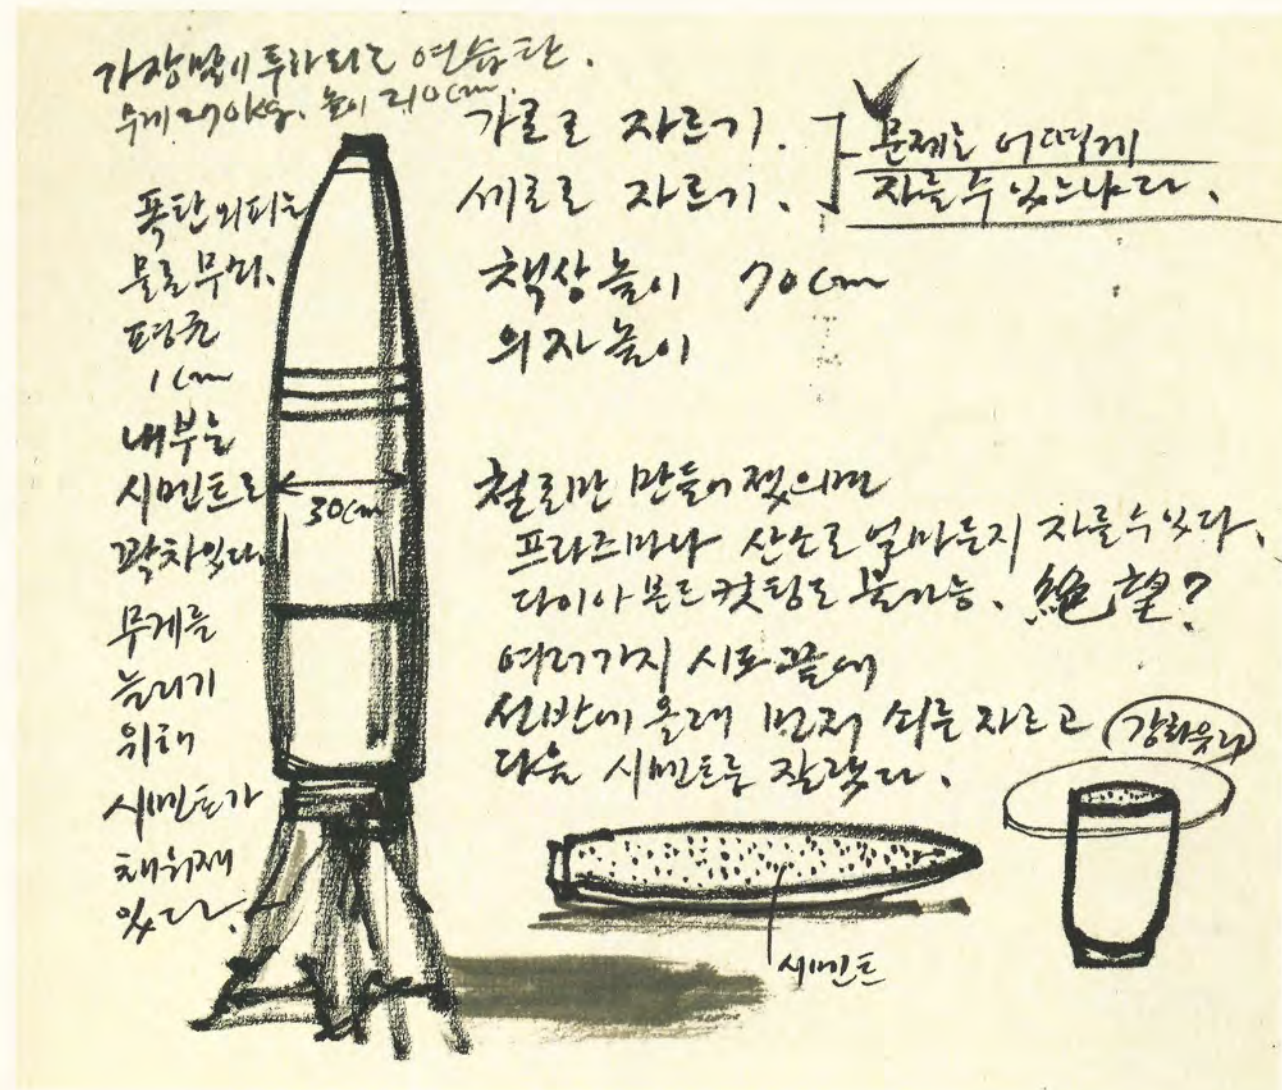 가장 많이 투하되는 연습탄.
무게 270kg. 높이 210cm.
폭탄 외피는
물로무쇠.
평균
1cm
내부는
시멘트로
꽉차있다.
무게를
늘리기
위해
시멘트가
채워져
있다.
30cm
가로로 자르기.
세로로 자르기.
문제는 어떻게
자를 수 있느냐다.
책상높이 70cm
의자높이
철로만 만들어졌으면
프라즈마나 산소로 얼마든지 자를 수 있다.
다이아몬드 컷팅도 불가능. 絶望?
여러가지 시도 끝에
선반에 올려 먼저 쇠를 자르고
다음 시멘트를 잘랐다.
강화유리
시멘트